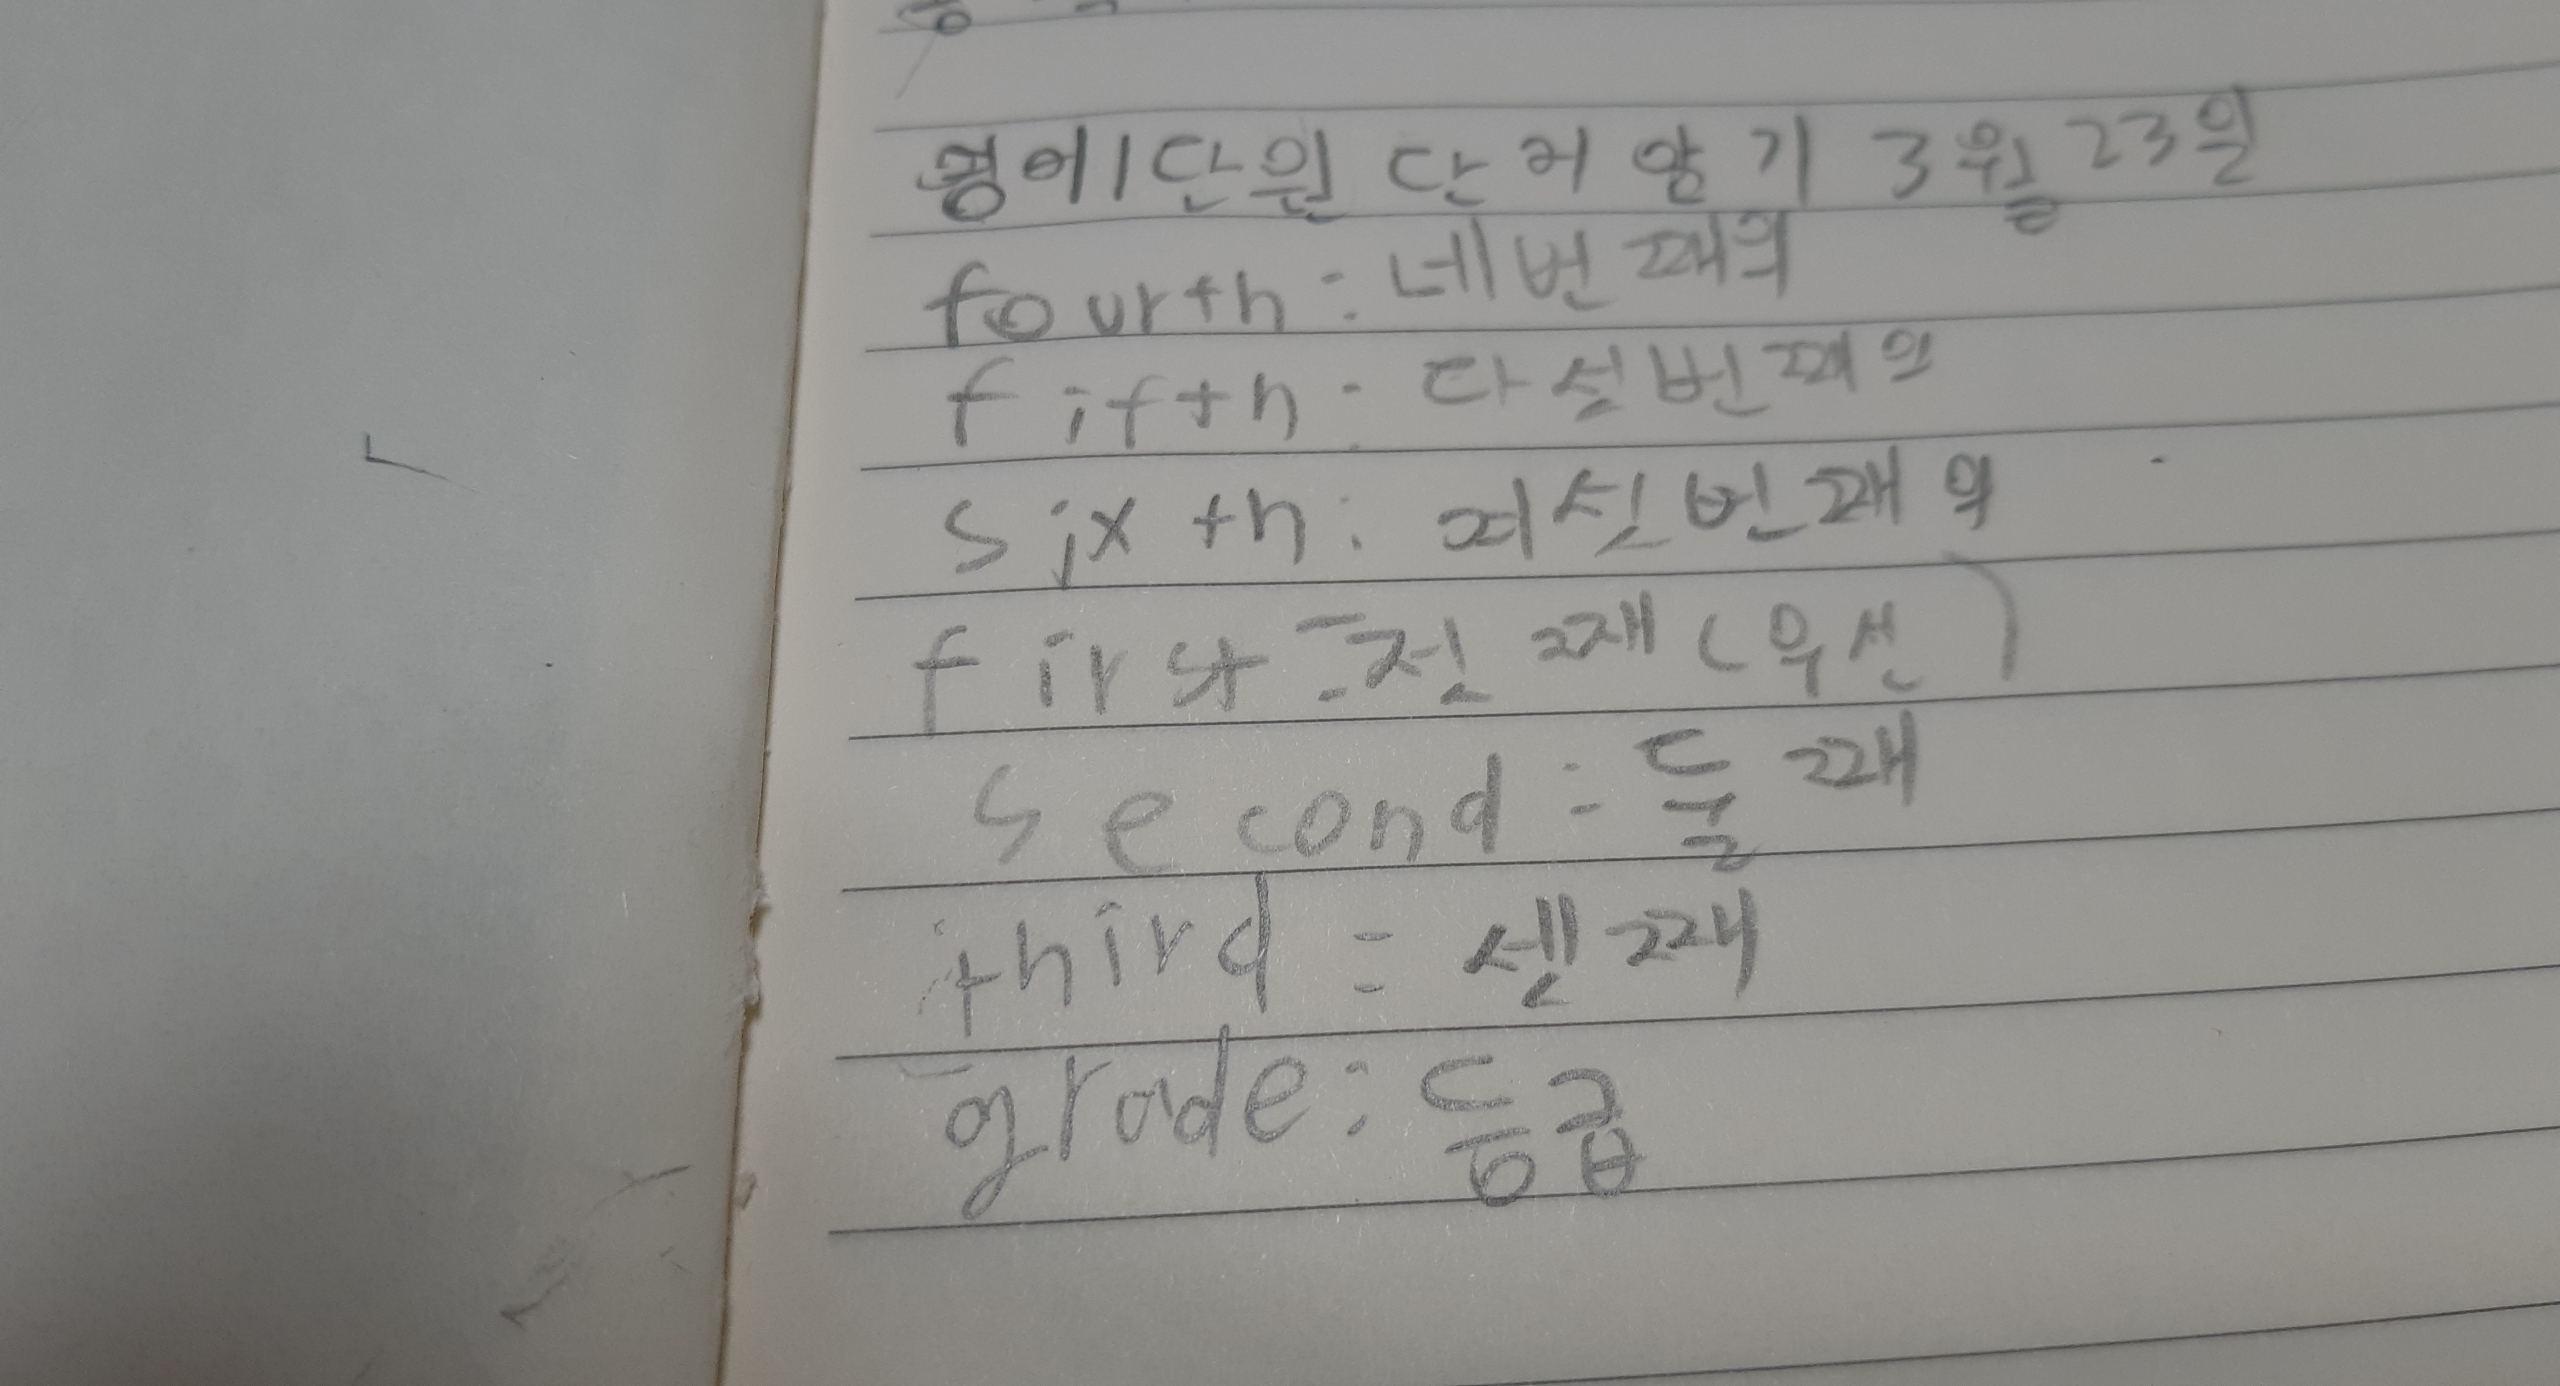 영어1단원 단어암기 3월23일
fourth : 네번째의
fifth : 다섯번째의
sixth : 번째의
first : 첫째 (우선)
second : 둘째
third : 셋째
grade : 등급